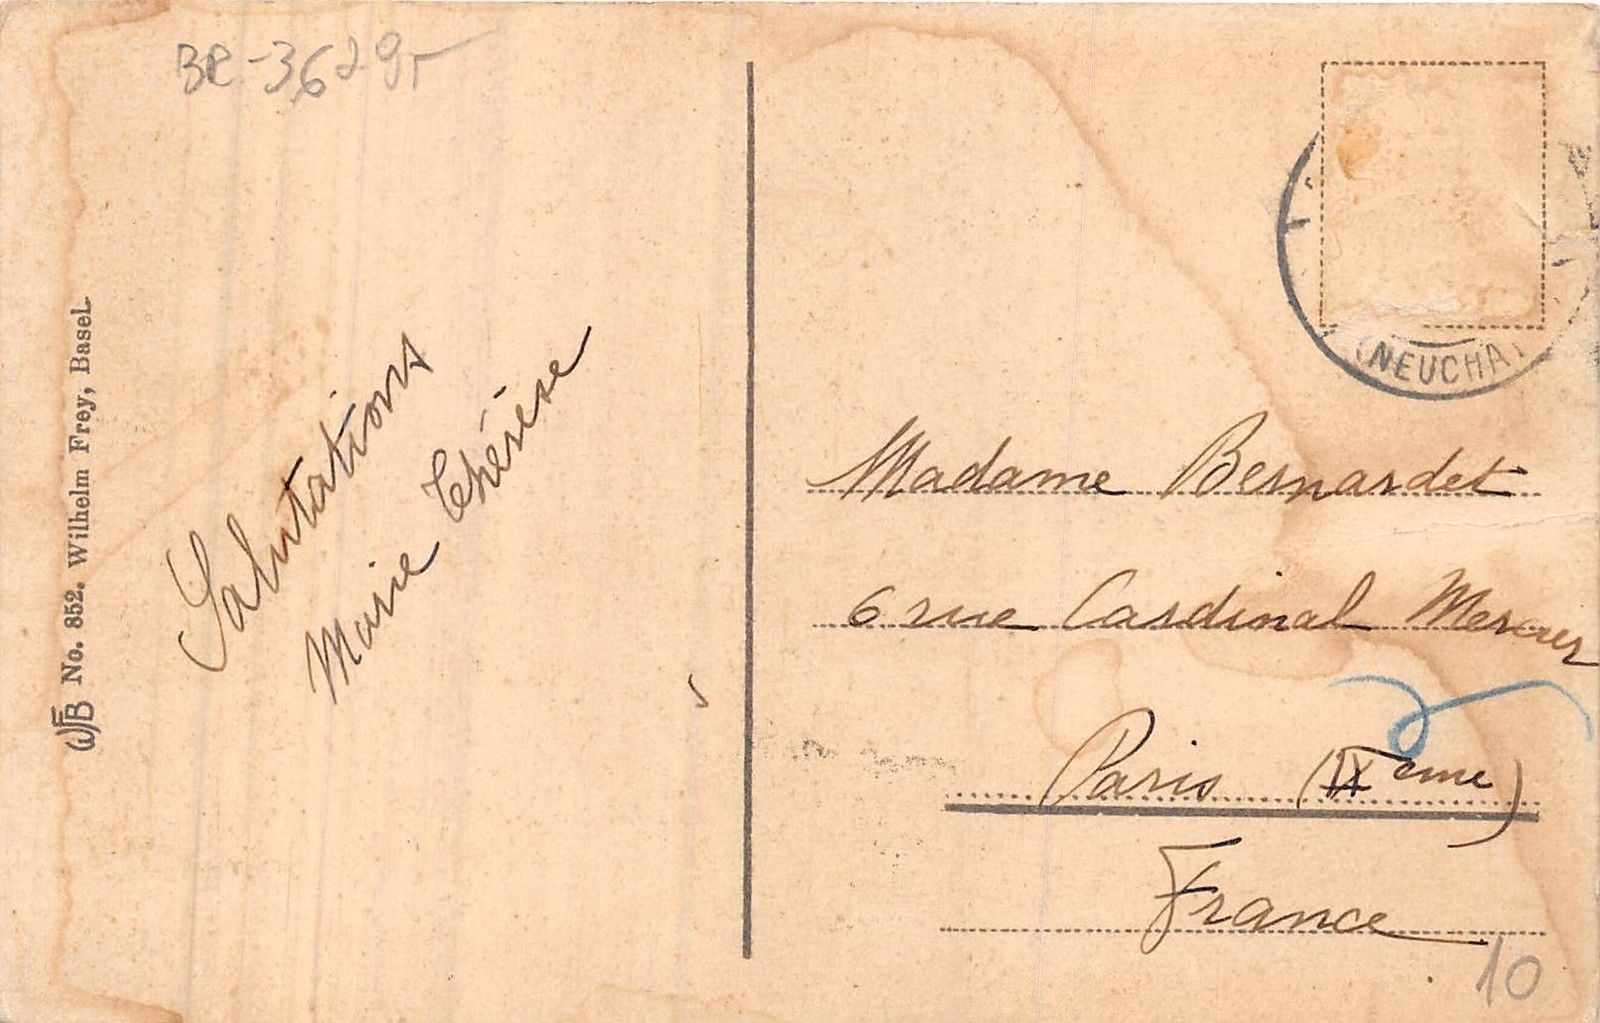 BR-3629r
WFB No. 852. Wilhelm Frey, Basel.
Salutations
Marie Thérèse
(NEUCHA
Madame Bernardet
6 rue Cardinal Mercier
Paris (IXeme)
France
10